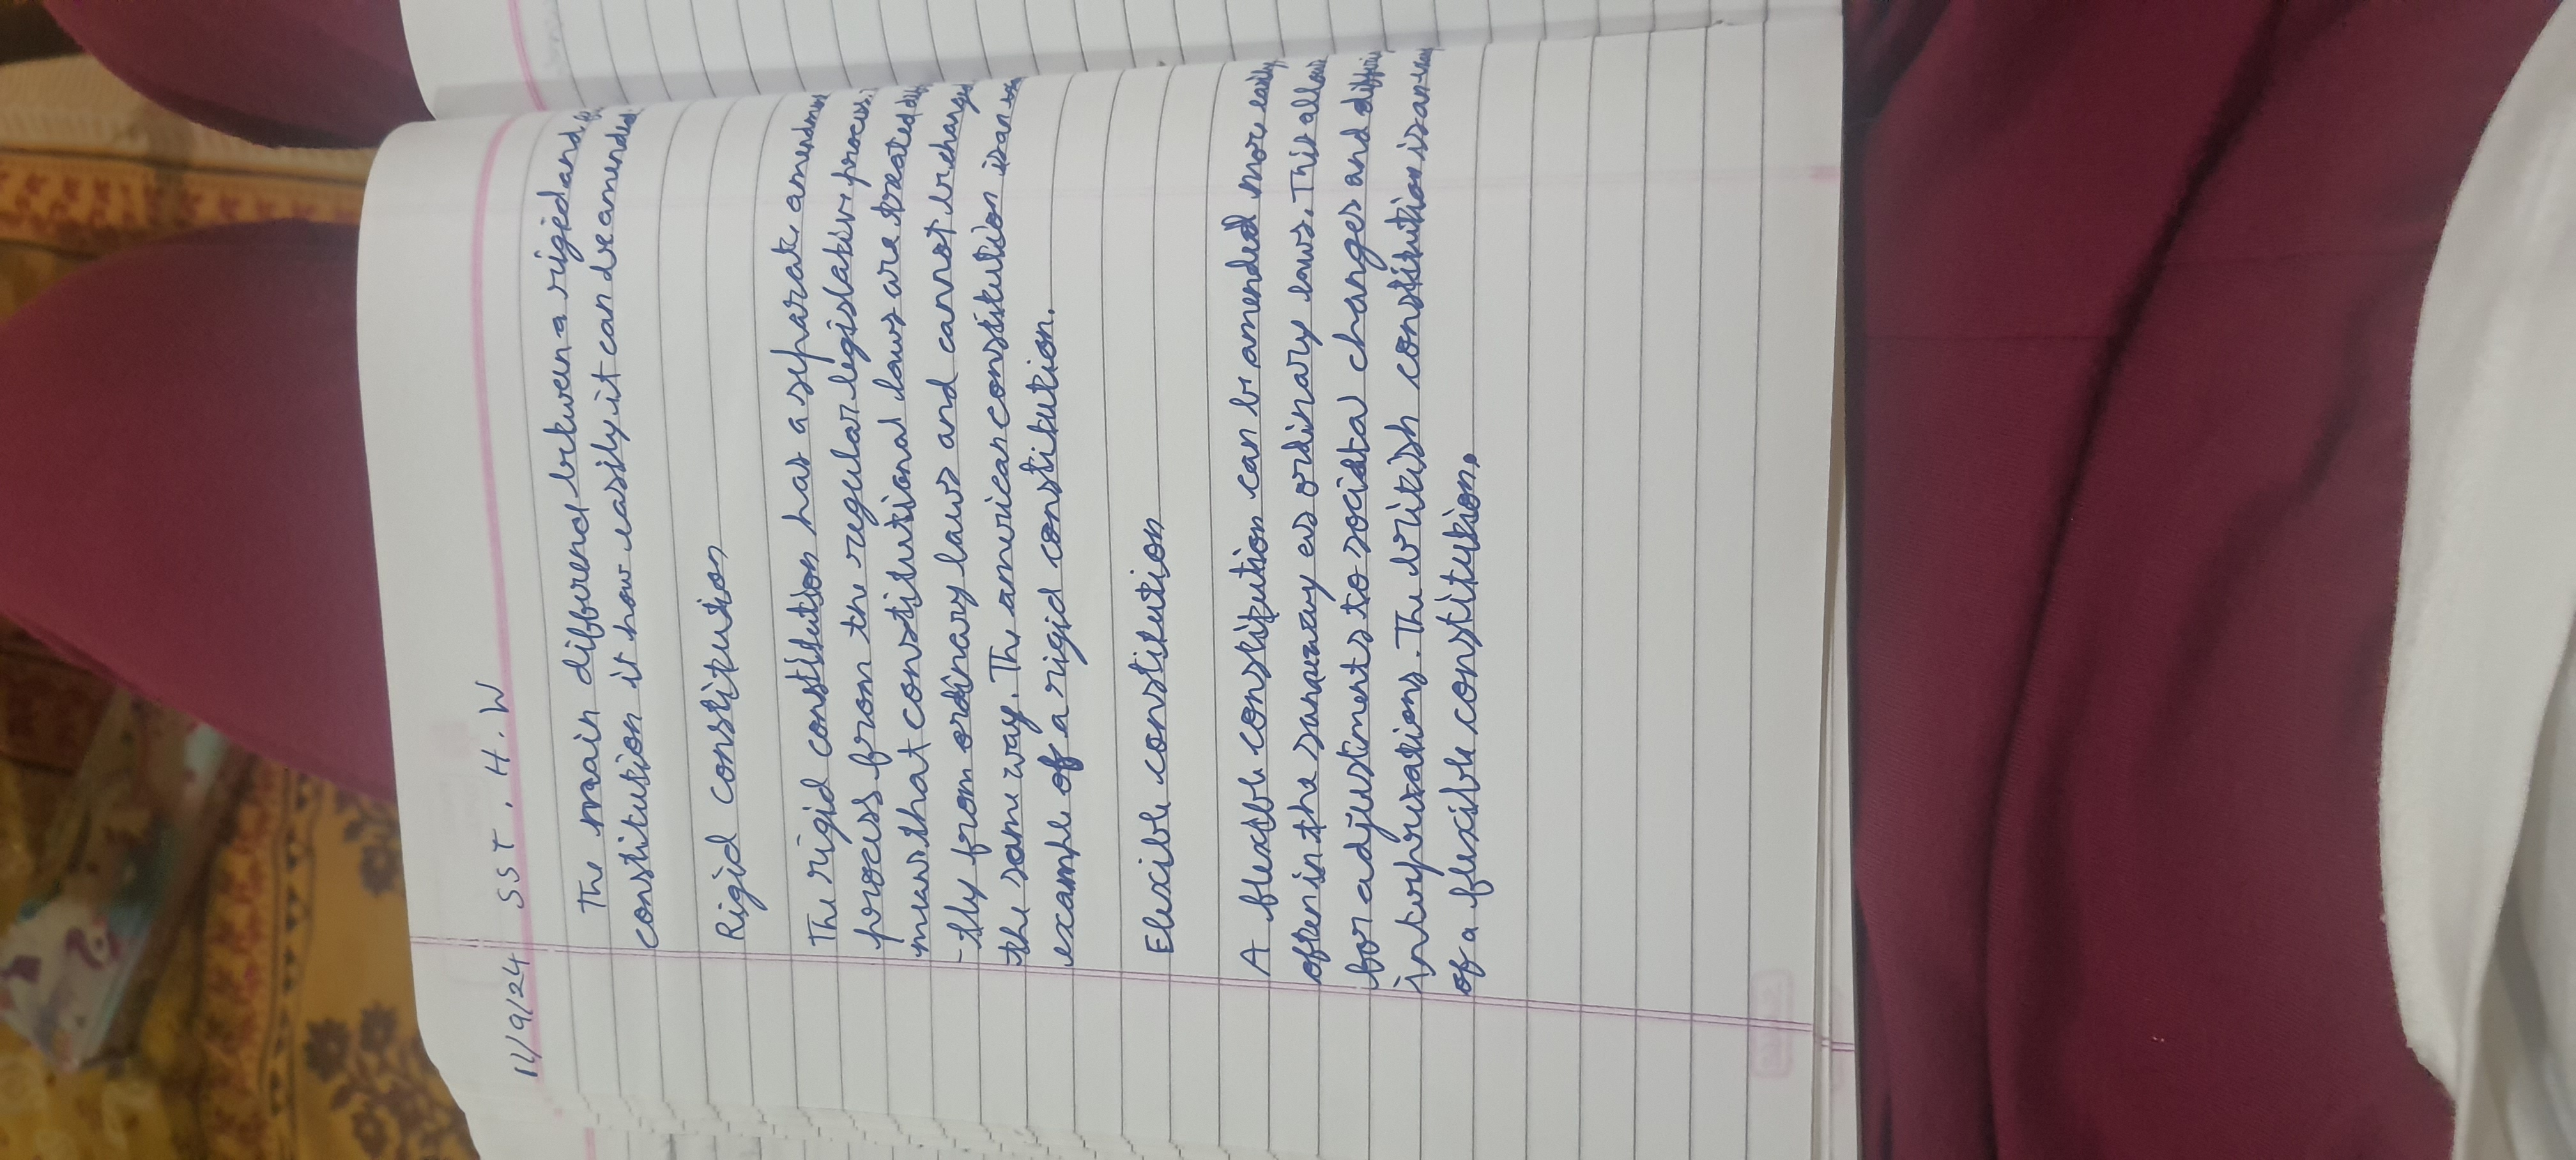 11/9/24 SST. H.W
The main differend between a rigid and
constitution is how easily it can be amended
Rigid constitution
The rigid constitution has a separate amendment
process from the regular legislative process.
means that constitutional laws are treated
-tly from ordinary laws and cannot be change
the same way. The american constitution is an
example of a rigid constitution.
Flexible constitution
A flexible constitution can be amended more easily
often in the same way as ordinary laws. This allow
for adjustments to societa changes and
interpretations. The british constitution is an
of a flexible constitution.